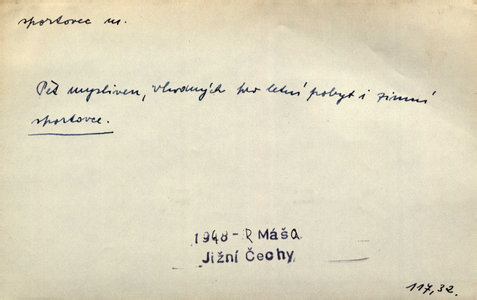 sportovec m.
Pět mysliven, vhodných pro letní pobyt i zimní
sportovce.
1948 - R Máša
Jižní Čechy
117,32.